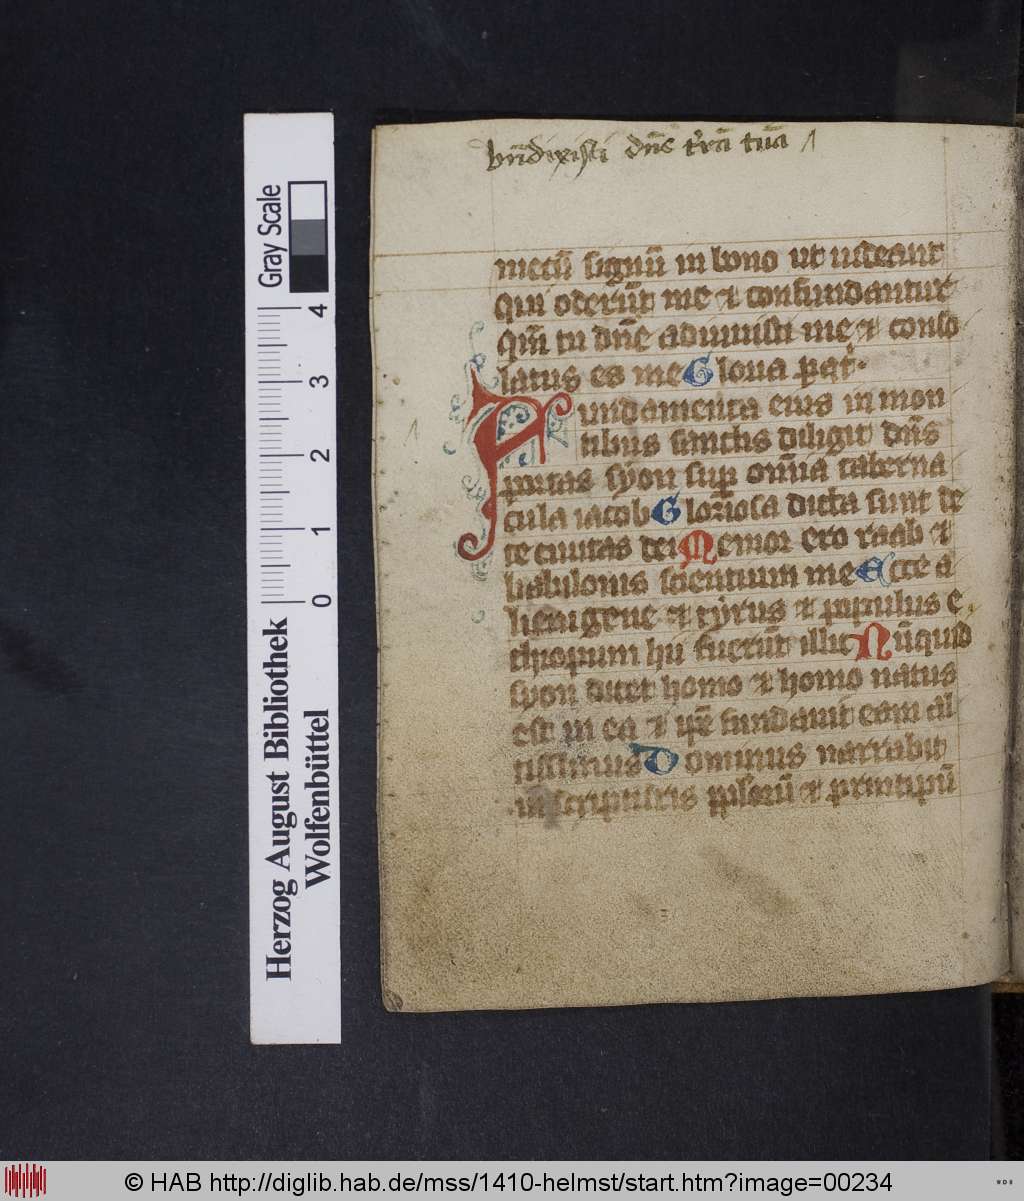 bn̄dixisti dn̄e t'rā tuā 1
mecū signū in bono ut uideant
qui oderūt me et confundantur
qm̄ tu dn̄e adiuuisti me et conso
latus es me Gloria pat'.
Fundamenta eius in mon
tibus sanctis diligit dn̄s
portas syon sup omīa taberna
cula iacob Gloriosa dicta sunt de
te ciuitas dei Memor ero raab et
babilonis scientium me Ecce a
lienigene et tyrus et populus e
thiopum hii fuerūt illic Nūquid
syon dicet homo et homo natus
est in ea et ip̄e fundauit eam al
tissimus Dominus narrabit
in scripturis pplorū et principū
Herzog August Bibliothek
Wolfenbüttel
Gray Scale
0 1 2 3 4
© HAB http://diglib.hab.de/mss/1410-helmst/start.htm?image=00234